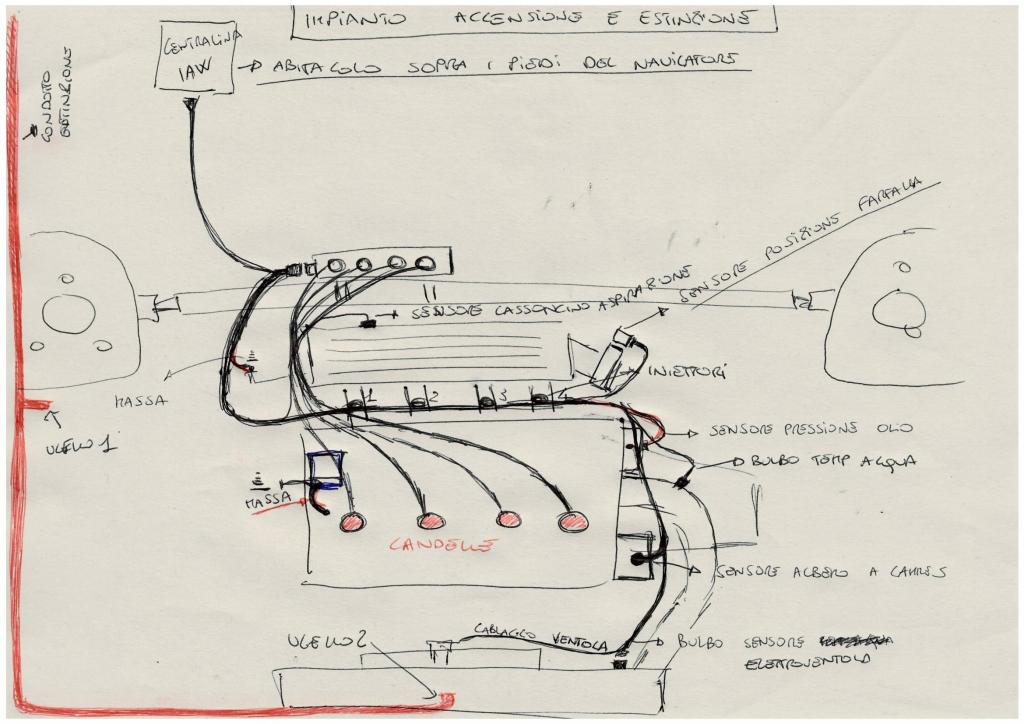 IMPIANTO ACCENSIONE E ESTINZIONE
CENTRALINA
IAW
ABITACOLO SOPRA I PIEDI DEL NAVIGATORE
CONDOTTO
ESTINZIONE
SENSORE POSIZIONE FARFALLA
SENSORE CASSONCINO ASPIRAZIONE
INIETTORI
1 2 3 4
MASSA
UGELLO 1
SENSORE PRESSIONE OLIO
BULBO TEMP ACQUA
MASSA
CANDELE
SENSORE ALBERO A CAMMES
UGELLO 2
CABLAGGIO VENTOLA
BULBO SENSORE
ELETTROVENTOLA